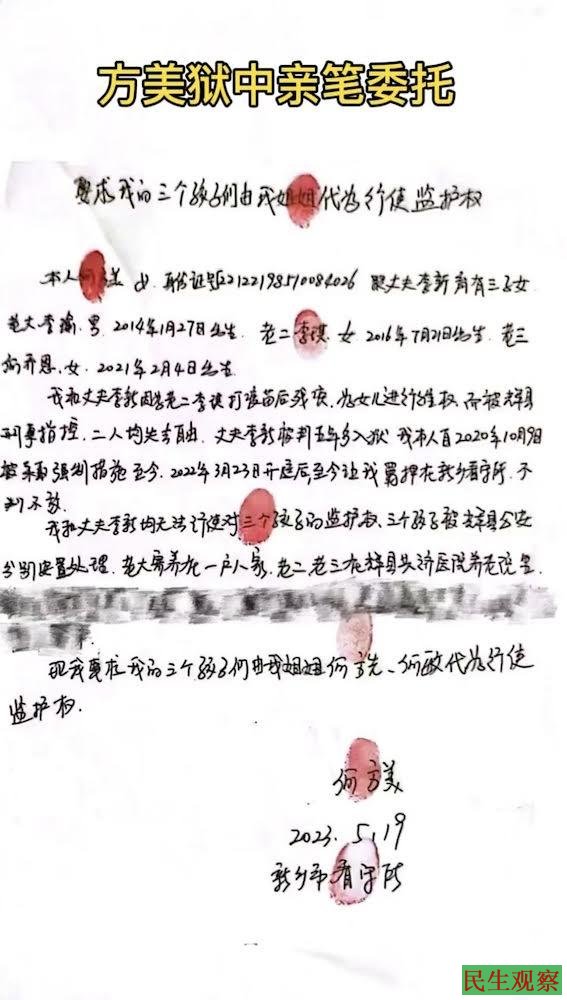 方美狱中亲笔委托
要求我的三个孩子们由我姐姐代为行使监护权
本人何方美 女 身份证 跟丈夫李新育有三子女
老大李 男 2014年1月27日出生 老二李琪 女 2016年7月21日出生 老三
何开恩 女 2021年2月4日出生
我和丈夫李新因老二李琪打疫苗后残疾 为女儿进行维权 而被辉县
刑事指控 二人均失去自由 丈夫李新被判五年多入狱 我本人自2020年10月9日
被采取强制措施至今 2022年3月23日开庭后至今让我羁押在新乡看守所 不
判不放
我和丈夫李新均无法行使对三个孩子的监护权 三个孩子被辉县公安
分别安置处理 老大寄养在一户人家 老二 老三在辉县共济医院养老院里
现我要求我的三个孩子们由我姐姐何 何 代为行使
监护权
何方美
2023.5.19
新乡市看守所
民生观察